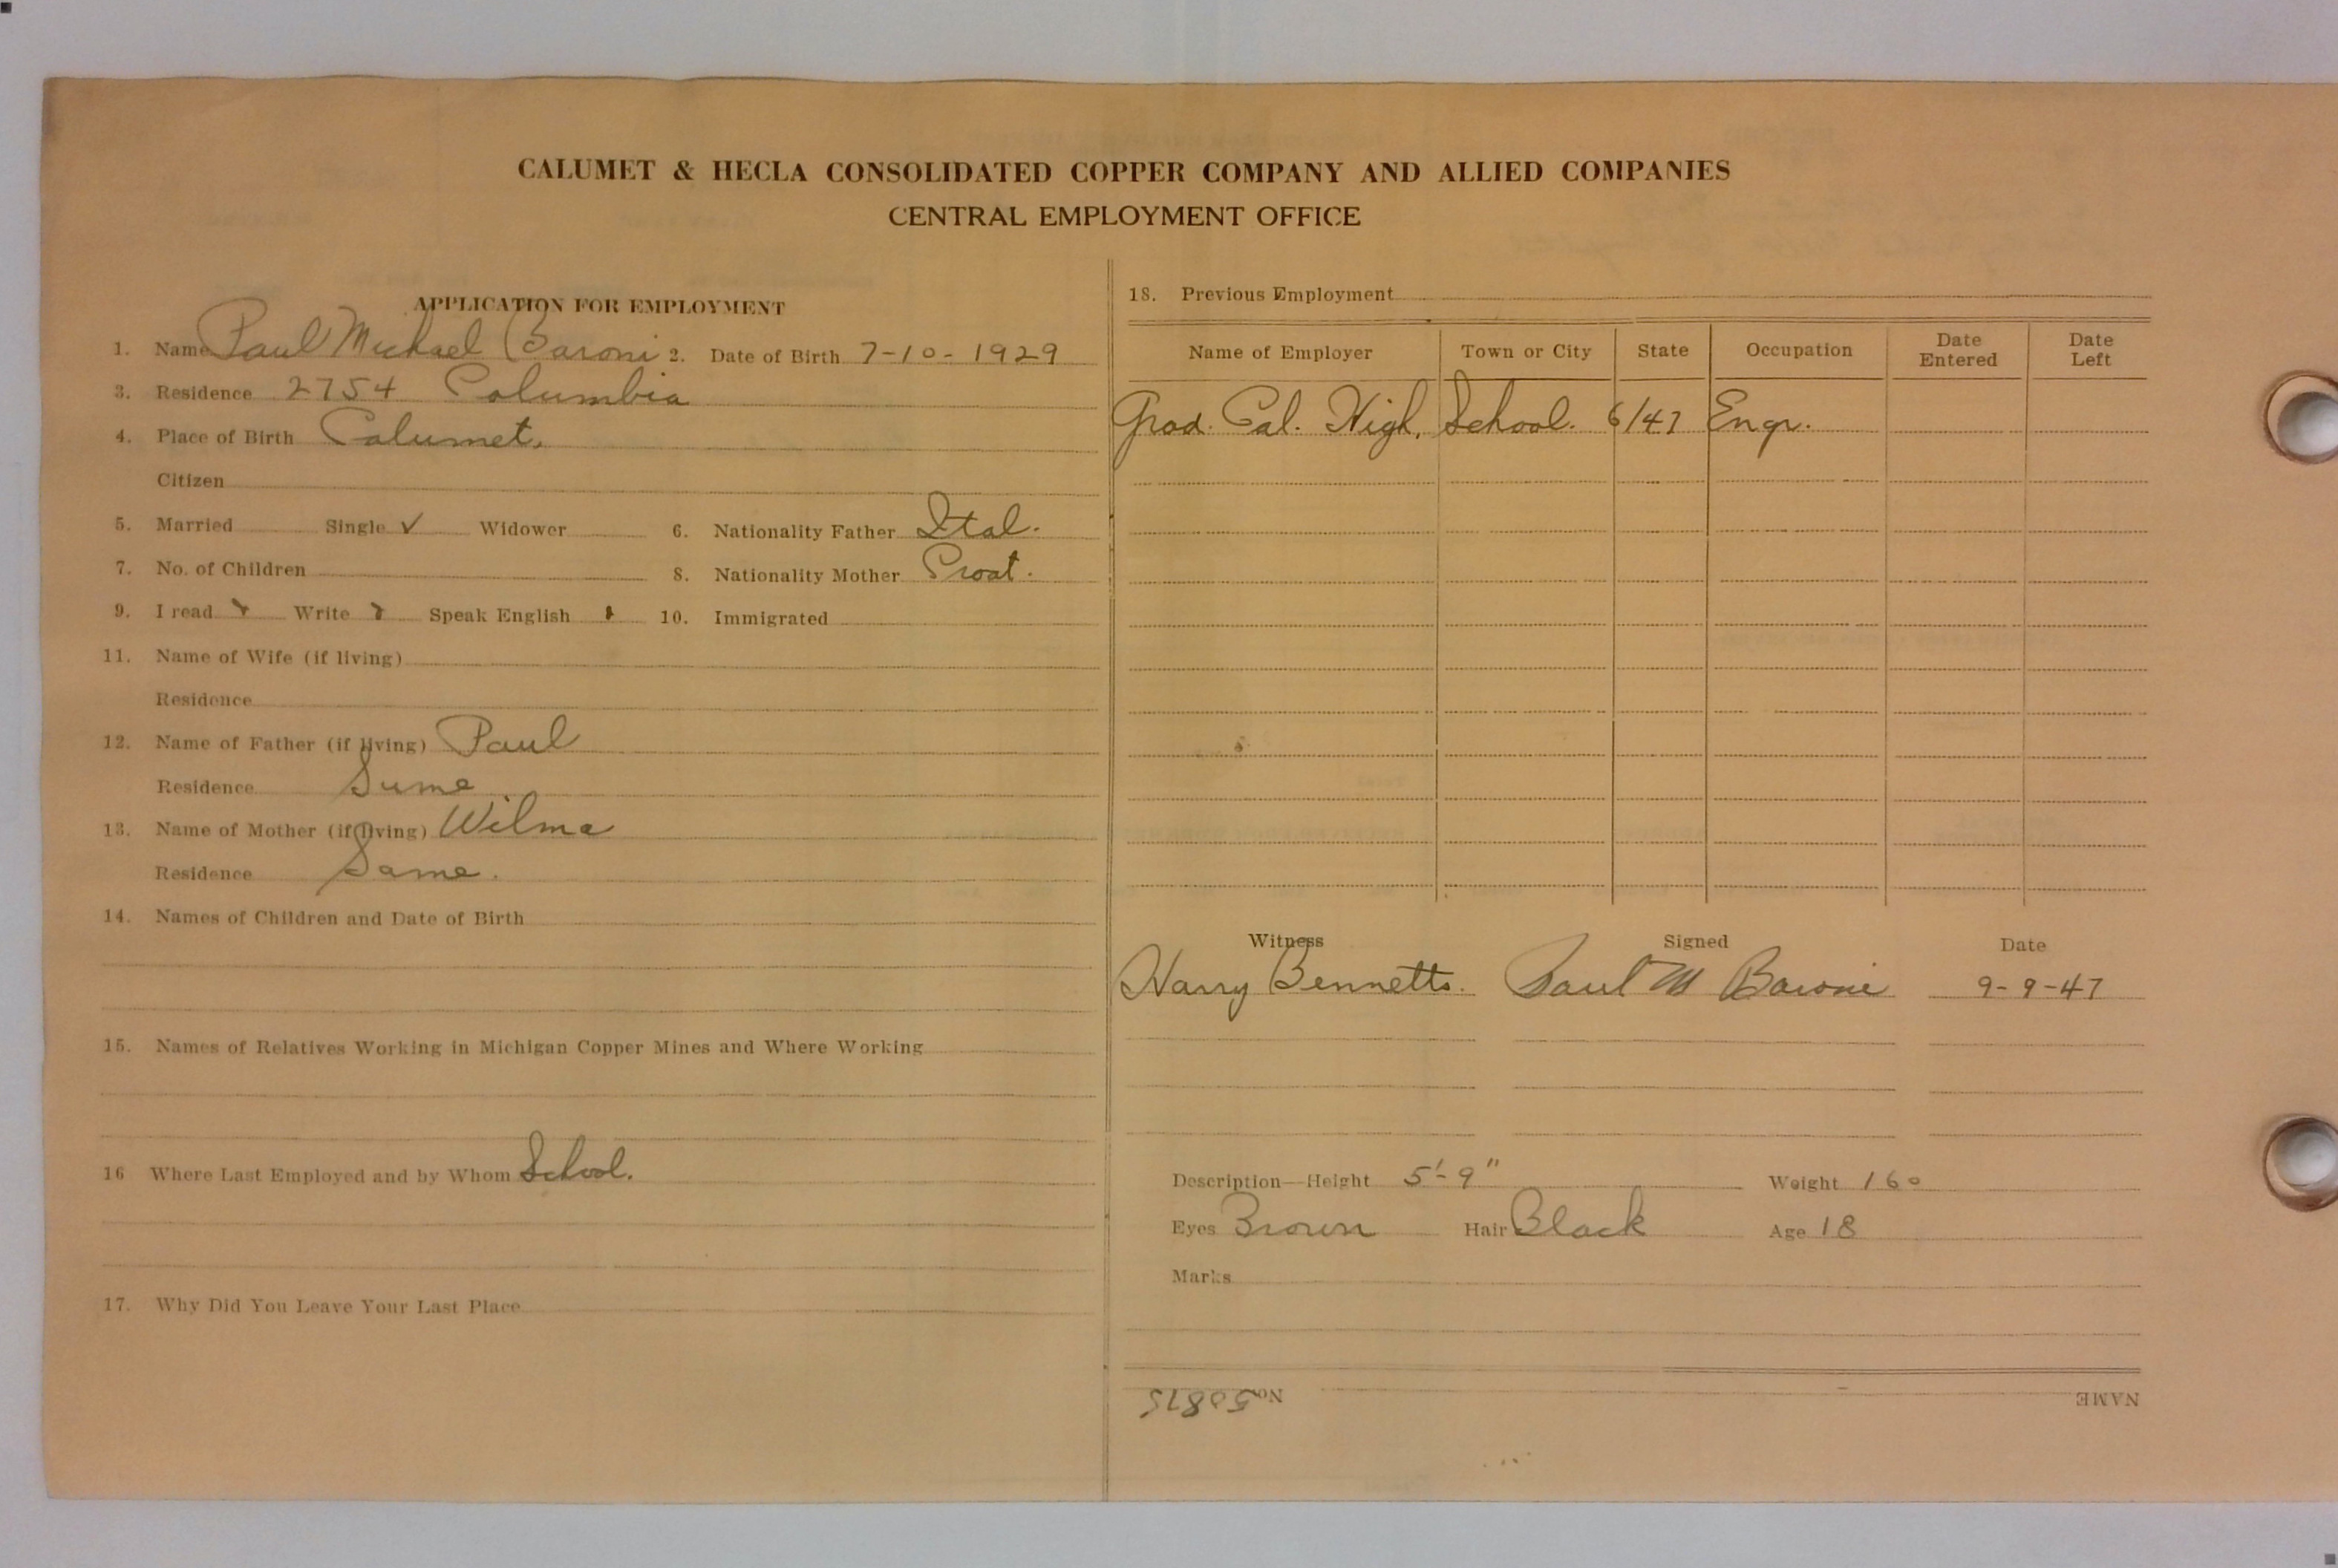 CALUMET & HECLA CONSOLIDATED COPPER COMPANY AND ALLIED COMPANIES
CENTRAL EMPLOYMENT OFFICE
APPLICATION FOR EMPLOYMENT
1. Name Paul Michael Baroni 2. Date of Birth 7-10-1929
3. Residence 2754 Columbia
4. Place of Birth Calumet.
Citizen
5. Married Single ✓ Widower 6. Nationality Father Ital.
7. No. of Children 8. Nationality Mother Croat.
9. I read Write Speak English 10. Immigrated
11. Name of Wife (if living)
Residence
12. Name of Father (if living) Paul
Residence Same
13. Name of Mother (if living) Wilma
Residence Same.
14. Names of Children and Date of Birth
15. Names of Relatives Working in Michigan Copper Mines and Where Working
16 Where Last Employed and by Whom School.
17. Why Did You Leave Your Last Place
18. Previous Employment
Name of Employer Town or City State Occupation Date Entered Date Left
Grad. Cal. High. School. 6/47 Engr.
Witness Signed Date
Harry Bennetts. Paul M Baroni 9-9-47
Description—Height 5'-9" Weight 160
Eyes Brown Hair Black Age 18
Marks
NAME No. 50875